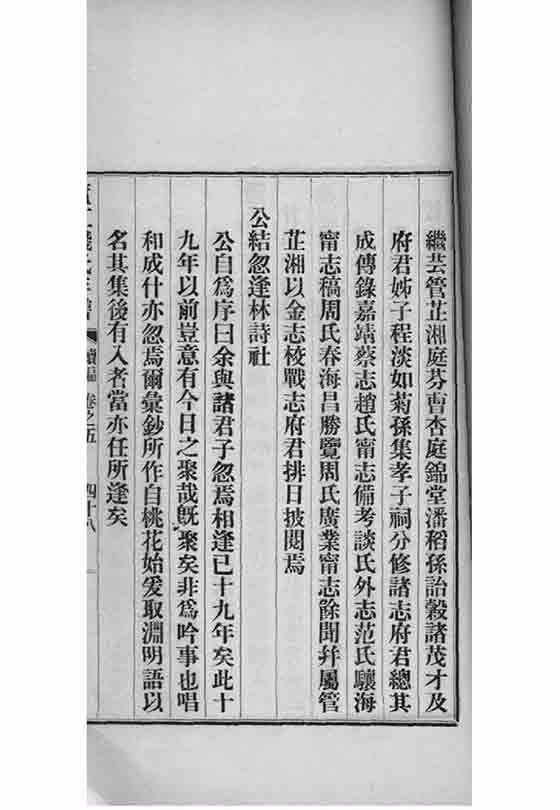 繼芸管芷湘庭芬曹杏庭錦堂潘稻孫詒穀諸茂才及
府君姊子程淡如菊孫集孝子祠分修諸志府君總其
成傳錄嘉靖蔡志趙氏甯志備考談氏外志范氏驤海
甯志稿周氏春海昌勝覽周氏廣業甯志餘聞幷屬管
芷湘以金志校戰志府君排日披閱焉
公結忽逢林詩社
公自爲序曰余與諸君子忽焉相逢已十九年矣此十
九年以前豈意有今日之聚哉旣聚矣非爲吟事也唱
和成什亦忽焉爾彙鈔所作自桃花始爰取淵明語以
名其集後有入者當亦任所逢矣
續編 卷之五 四十八